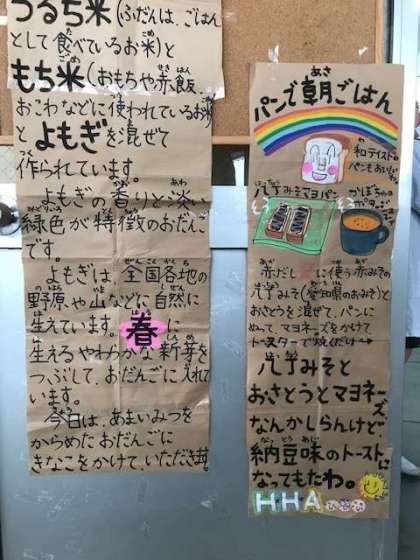 うるち米(ふだんは、ごはん
として食べているお米)と
もち米(おもちや赤飯、
おこわなどに使われているお米)
とよもぎを混ぜて
作られています。
よもぎの香りと淡い
緑色が特徴のおだんご
です。
よもぎは、全国各地の
野原や山などに自然に
生えています。春に
生えるやわらかな新芽を
つぶして、おだんごに入れて
います。
今日は、あまいみつを
からめたおだんごに
きなこをかけて、いただきます
パンで朝ごはん
和テイストの
パンもおいしい
八丁みそマヨパン
かぼちゃの
ポタージュ
赤だしに使う赤みその
八丁みそ(愛知県のおみそ)と
おさとうを混ぜて、パンに
ぬって、マヨネーズをかけて
トースターで焼くだけ→
八丁みそと
おさとうとマヨネーズ
なんかしらんけど
納豆味のトーストに
なってもたわ。
HHA